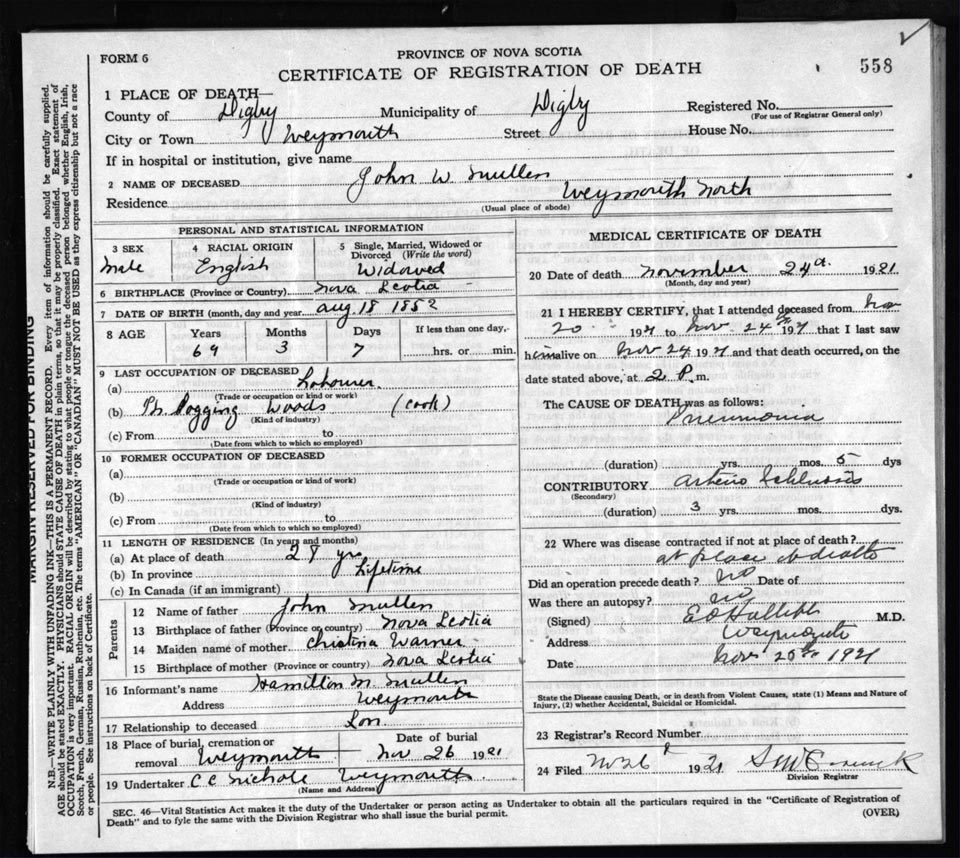 FORM 6
PROVINCE OF NOVA SCOTIA
CERTIFICATE OF REGISTRATION OF DEATH
558
1 PLACE OF DEATH—
County of Digby Municipality of Digby Registered No.
(For use of Registrar General only)
City or Town Weymouth Street House No.
If in hospital or institution, give name
2 NAME OF DECEASED John W Mullen
Residence Weymouth North
(Usual place of abode)
PERSONAL AND STATISTICAL INFORMATION
3 SEX 4 RACIAL ORIGIN 5 Single, Married, Widowed or Divorced (Write the word)
Male English Widowed
6 BIRTHPLACE (Province or Country) Nova Scotia
7 DATE OF BIRTH (month, day and year) Aug 18 1852
8 AGE Years Months Days If less than one day,
69 3 7 hrs. or min.
9 LAST OCCUPATION OF DECEASED
(a) Labourer
(Trade or occupation or kind or work)
(b) Logging Woods (Cook)
(Kind of industry)
(c) From to
(Date from which to which so employed)
10 FORMER OCCUPATION OF DECEASED
(a)
(Trade or occupation or kind of work)
(b)
(Kind of industry)
(c) From to
(Date from which to which so employed)
11 LENGTH OF RESIDENCE (In years and months)
(a) At place of death yrs
(b) In province Lifetime
(c) In Canada (if an immigrant)
Parents
12 Name of father John Mullen
13 Birthplace of father (Province or country) Nova Scotia
14 Maiden name of mother Christina Warner
15 Birthplace of mother (Province or country) Nova Scotia
16 Informant's name Hamilton M. Mullen
Address Weymouth
17 Relationship to deceased Son
18 Place of burial, cremation or removal Weymouth Date of burial Nov 26 1921
19 Undertaker C C Nichols Weymouth
(Name and Address)
MEDICAL CERTIFICATE OF DEATH
20 Date of death November 24th 1921
(Month, day and year)
21 I HEREBY CERTIFY, that I attended deceased from Nov
20 1921 to Nov. 24th 1921 that I last saw
him alive on Nov 24 1921 and that death occurred, on the
date stated above, at 2 P. m.
The CAUSE OF DEATH was as follows:
Pneumonia
(duration) yrs. mos. 5 dys
CONTRIBUTORY Arterio Sclerosis
(Secondary)
(duration) 3 yrs. mos. dys.
22 Where was disease contracted if not at place of death?
at place of death
Did an operation precede death? no Date of
Was there an autopsy? no
(Signed) M.D.
Address Weymouth
Date Nov 25th 1921
State the Disease causing Death, or in death from Violent Causes, state (1) Means and Nature of Injury, (2) whether Accidental, Suicidal or Homicidal.
23 Registrar's Record Number
24 Filed 1921
Division Registrar
SEC. 46—Vital Statistics Act makes it the duty of the Undertaker or person acting as Undertaker to obtain all the particulars required in the "Certificate of Registration of
Death" and to fyle the same with the Division Registrar who shall issue the burial permit.
(OVER)
MARGIN RESERVED FOR BINDING
N.B.—WRITE PLAINLY WITH UNFADING INK—THIS IS A PERMANENT RECORD. Every item of information should be carefully supplied.
AGE should be stated EXACTLY. PHYSICIANS should STATE CAUSE OF DEATH in plain terms, so that it may be properly classified. Exact statement of
OCCUPATION is very important. RACIAL ORIGIN will be described by stating to what people or tongue the deceased person belonged whether English, Irish,
Scotch, French, German, Russian, Ruthenian, etc. The terms "AMERICAN" OR "CANADIAN" MUST NOT BE USED as they express citizenship but not a race
or people. See instructions on back of Certificate.